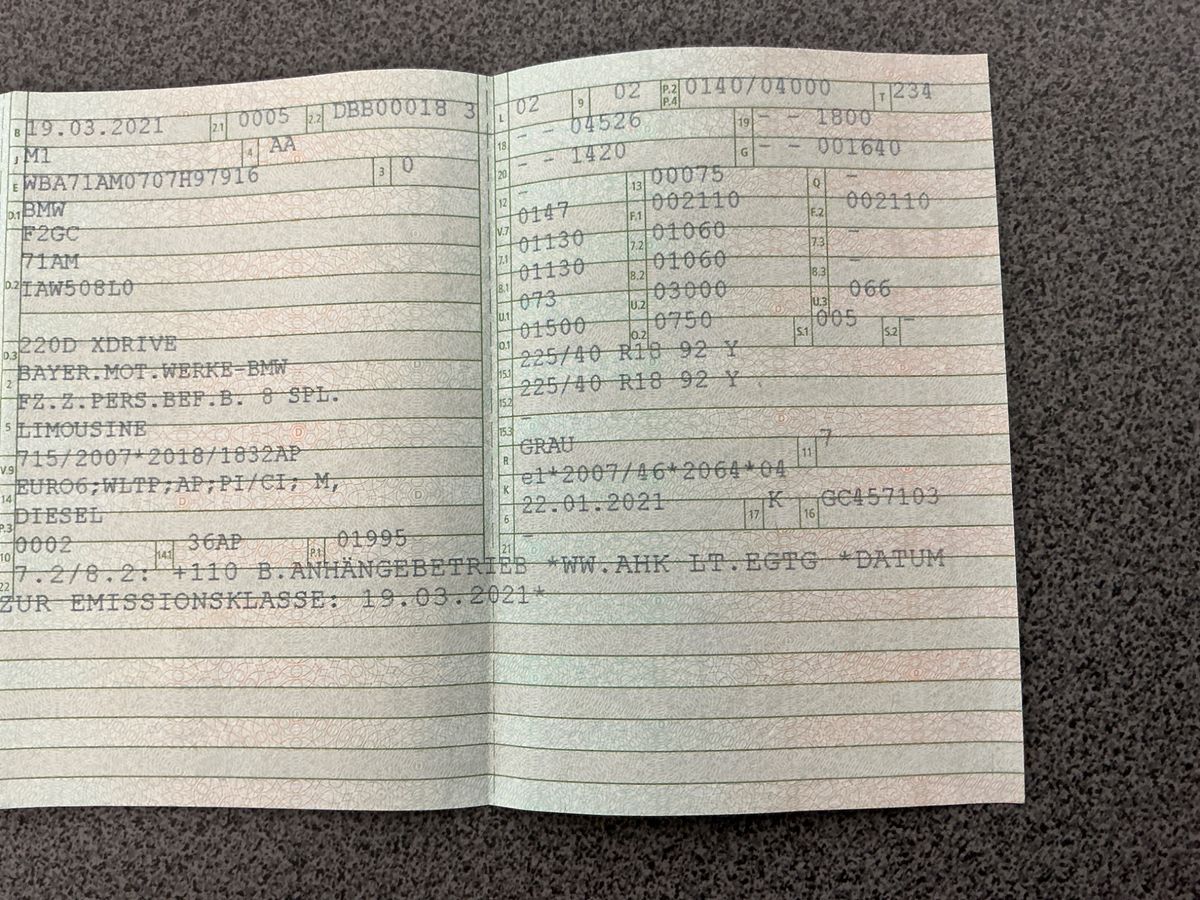 B 19.03.2021 2.1 0005 2.2 DBB00018 3
J M1 4 AA
E WBA71AM0707H97916 3 0
D.1 BMW
D.2 F2GC
71AM
IAW508L0
D.3 220D XDRIVE
2 BAYER.MOT.WERKE-BMW
5 FZ.Z.PERS.BEF.B. 8 SPL.
LIMOUSINE
V.9 715/2007*2018/1832AP
14 EURO6;WLTP;AP;PI/CI; M,
P.3 DIESEL
10 0002 14.1 36AP P.1 01995
L 02 9 02 P.2 P.4 0140/04000 T 234
18 - - 04526 19 - - 1800
20 - - 1420 G - - 001640
12 - 13 00075 Q -
V.7 0147 F.1 002110 F.2 002110
7.1 01130 7.2 01060 7.3 -
8.1 01130 8.2 01060 8.3 -
U.1 073 U.2 03000 U.3 066
O.1 01500 O.2 0750 S.1 005 S.2 -
15.1 225/40 R18 92 Y
15.2 225/40 R18 92 Y
15.3 -
R GRAU 11 7
K e1*2007/46*2064*04
6 22.01.2021 17 K 16 GC457103
21 -
22 7.2/8.2: +110 B.ANHÄNGEBETRIEB *WW.AHK LT.EGTG *DATUM
ZUR EMISSIONSKLASSE: 19.03.2021*